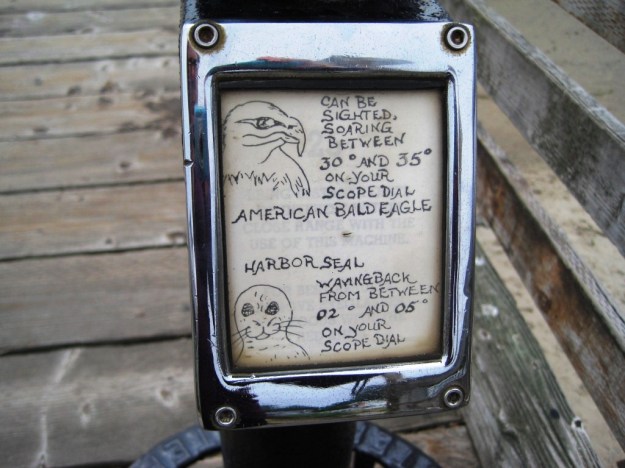 CAN BE
SIGHTED,
SOARING
BETWEEN
30° AND 35°
ON YOUR
SCOPE DIAL
AMERICAN BALD EAGLE
CLOSE RANGE WITH THE
USE OF THIS MACHINE
HARBOR SEAL
WAVING BACK
FROM BETWEEN
02° AND 05°
ON YOUR
SCOPE DIAL